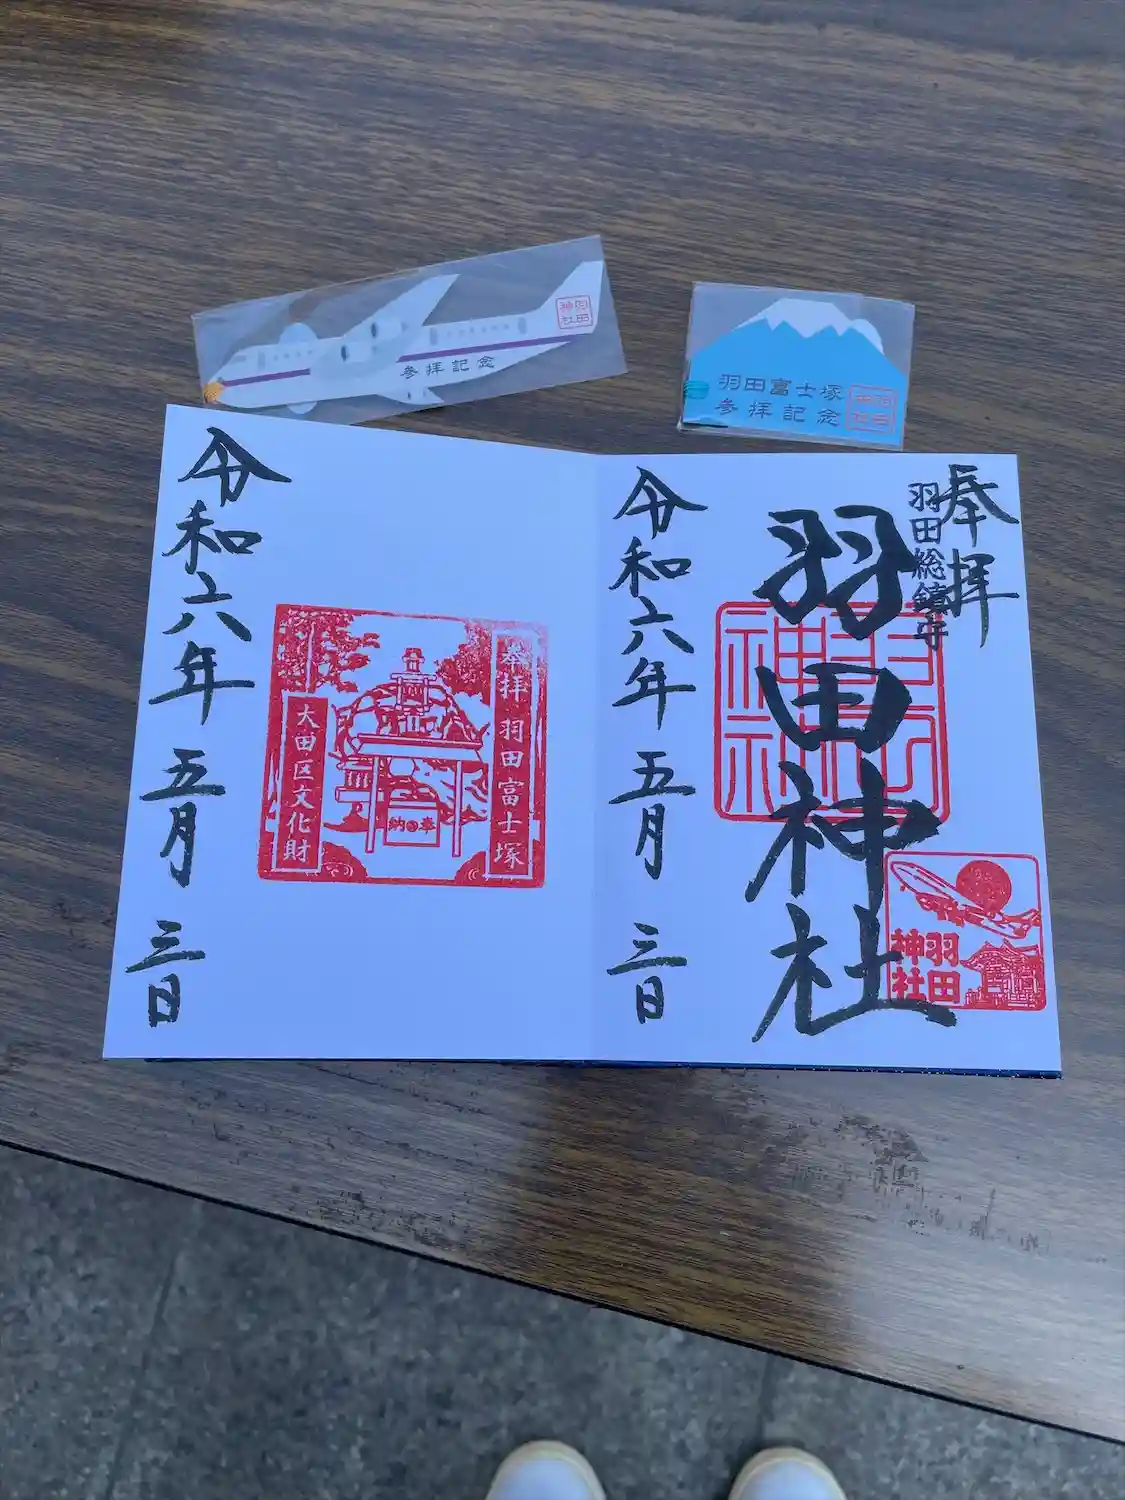 参拝記念
羽田
神社
羽田富士塚
参拝記念
羽田
神社
奉拝
羽田総鎮守
羽田神社
羽田
神社
令和六年 五月 三日
奉拝 羽田富士塚
大田区文化財
奉納
令和六年 五月 三日